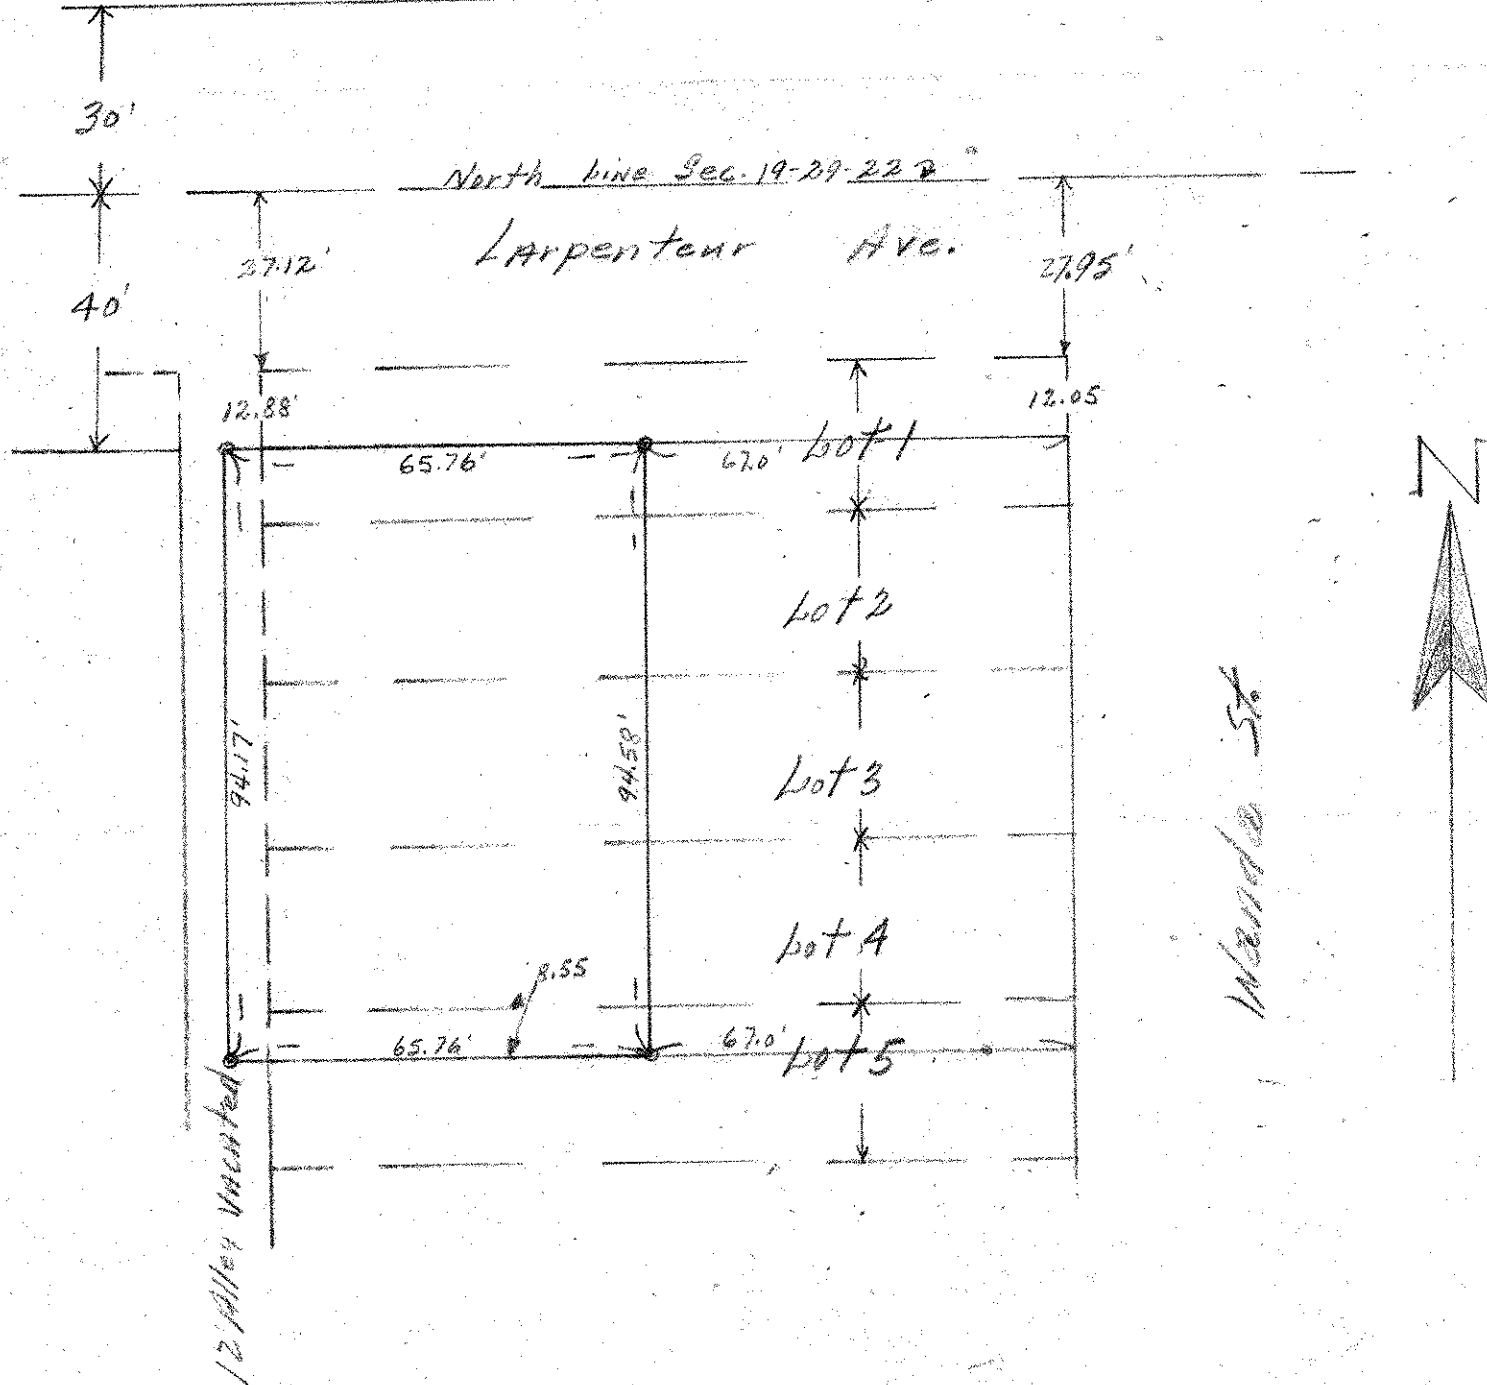 30'
North Line Sec. 19-29-22
Larpenteur Ave.
27.12'
27.95'
40'
12.88'
12.05
65.76'
67.0'
Lot 1
N
Lot 2
94.17'
94.58'
Lot 3
Wanda St.
Lot 4
8.55
65.76'
67.0'
Lot 5
12' Alley vacated